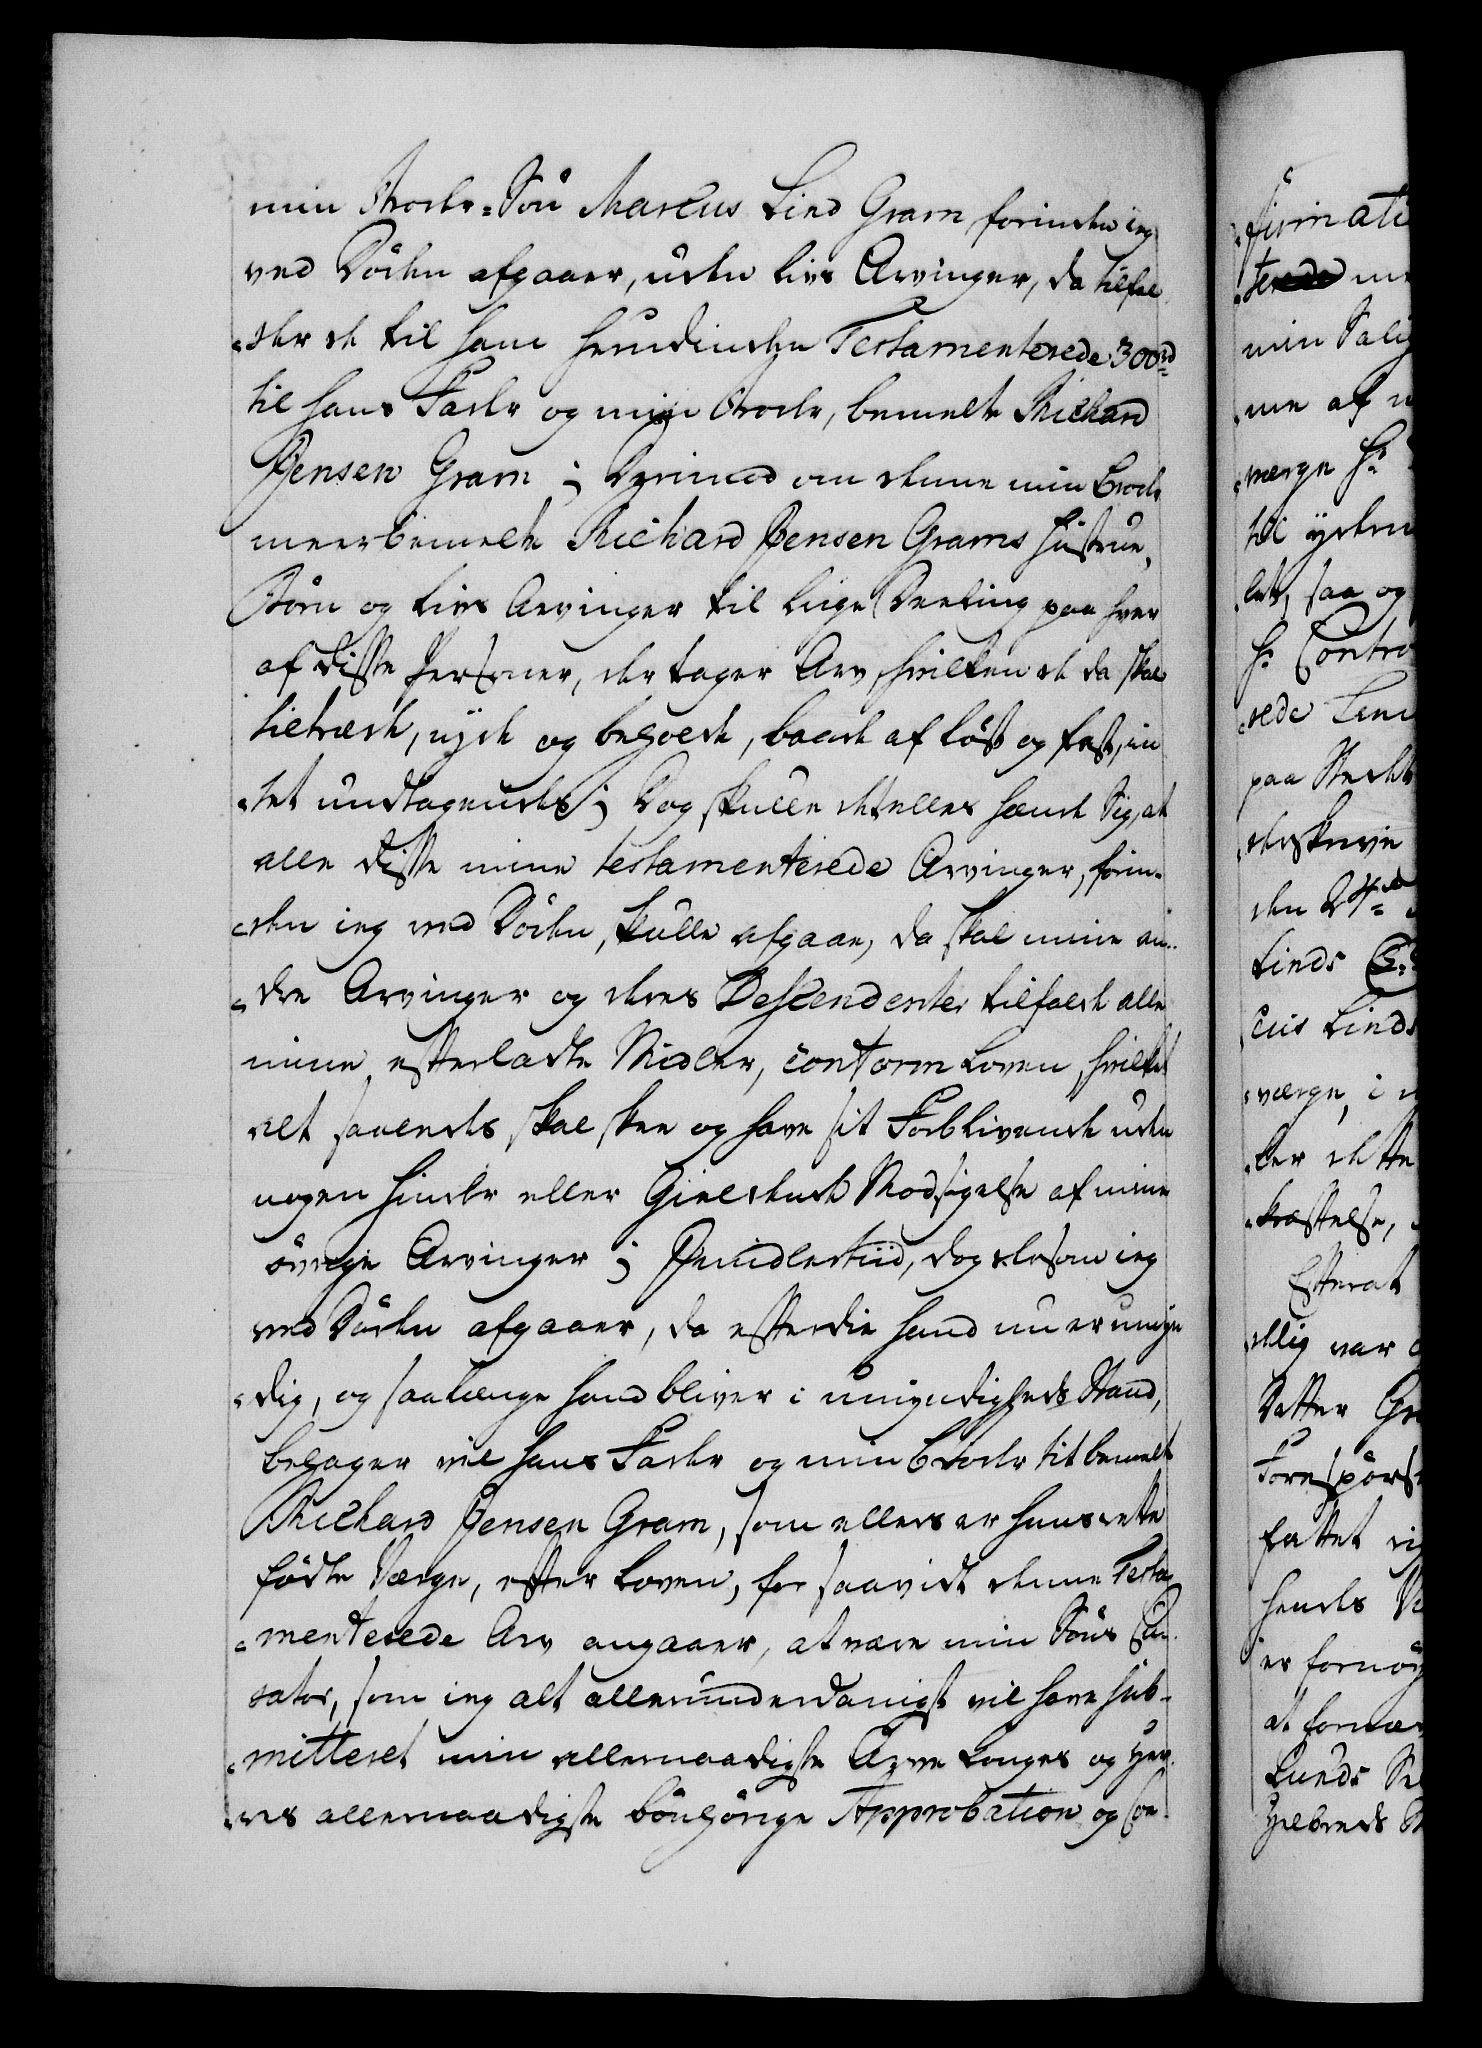 min Broder-Søn Marcus Lind Gram forinden ieg
ved Døden afgaaer, uden Livs Arvinger, da tilfal-
-der de til ham herudinden Testamenterede 300rd
til hans Fader og min Broder, bemelte Richard
Jensen Gram; Dernæst om denne min Brode
meerbemelte Richard Jensen Grams Hustrue,
Børn og Livs Arvinger til liige Deeling paa hver
af disse Personer, der tager Arv, hvilken de da skal
tiltræde, nyde og beholde, baade af løst og fast, in-
-tet undtagendes; Dog skulle det ellers hænde Sig, at
alle disse mine testamenterede Arvinger, forin-
-den ieg ved Døden, skulle afgaae, da skal mine an-
-dre Arvinger og deres Descendenter tilfalde alle
mine efterladte Midler, conform Loven, hvilket
alt saaledes skal skee og have sit Forblivende uden
nogen Hinder eller Gieldende Modsigelse af mine
øvrige Arvinger; Imidlertiid, dog dersom ieg
ved Døden afgaaer, da efterdie hand nu er umyn-
-dig, og saalænge hand bliver i umyndigheds Stand,
behager vel hans Fader og min Broder titbemelte
Richard Jensen Gram, som ellers er hans rette
fødte Værge, efter Loven, for saavidt denne Testa-
-menterede Arv angaaer, at være min Søns Cu-
rator, som ieg alt allerunderdanigst vil have sub-
-mitteret min allernaadigste Arve Konges og Her-
-res allernaadigste bønhørige Approbation og Con-
-firmati
-terede
min Salig
-me af
værge Hr
til
let, saa og
Hr Contro
-rede
paa
-derskreve
den 24de
Linds
cus Linds
værge, i
-ler dette
-kræftelse,
Efterat
-delig var
Datter Gr
Forespørs
fattet
hendes
er fornøy
at fornæ
Lunds
Helbreds